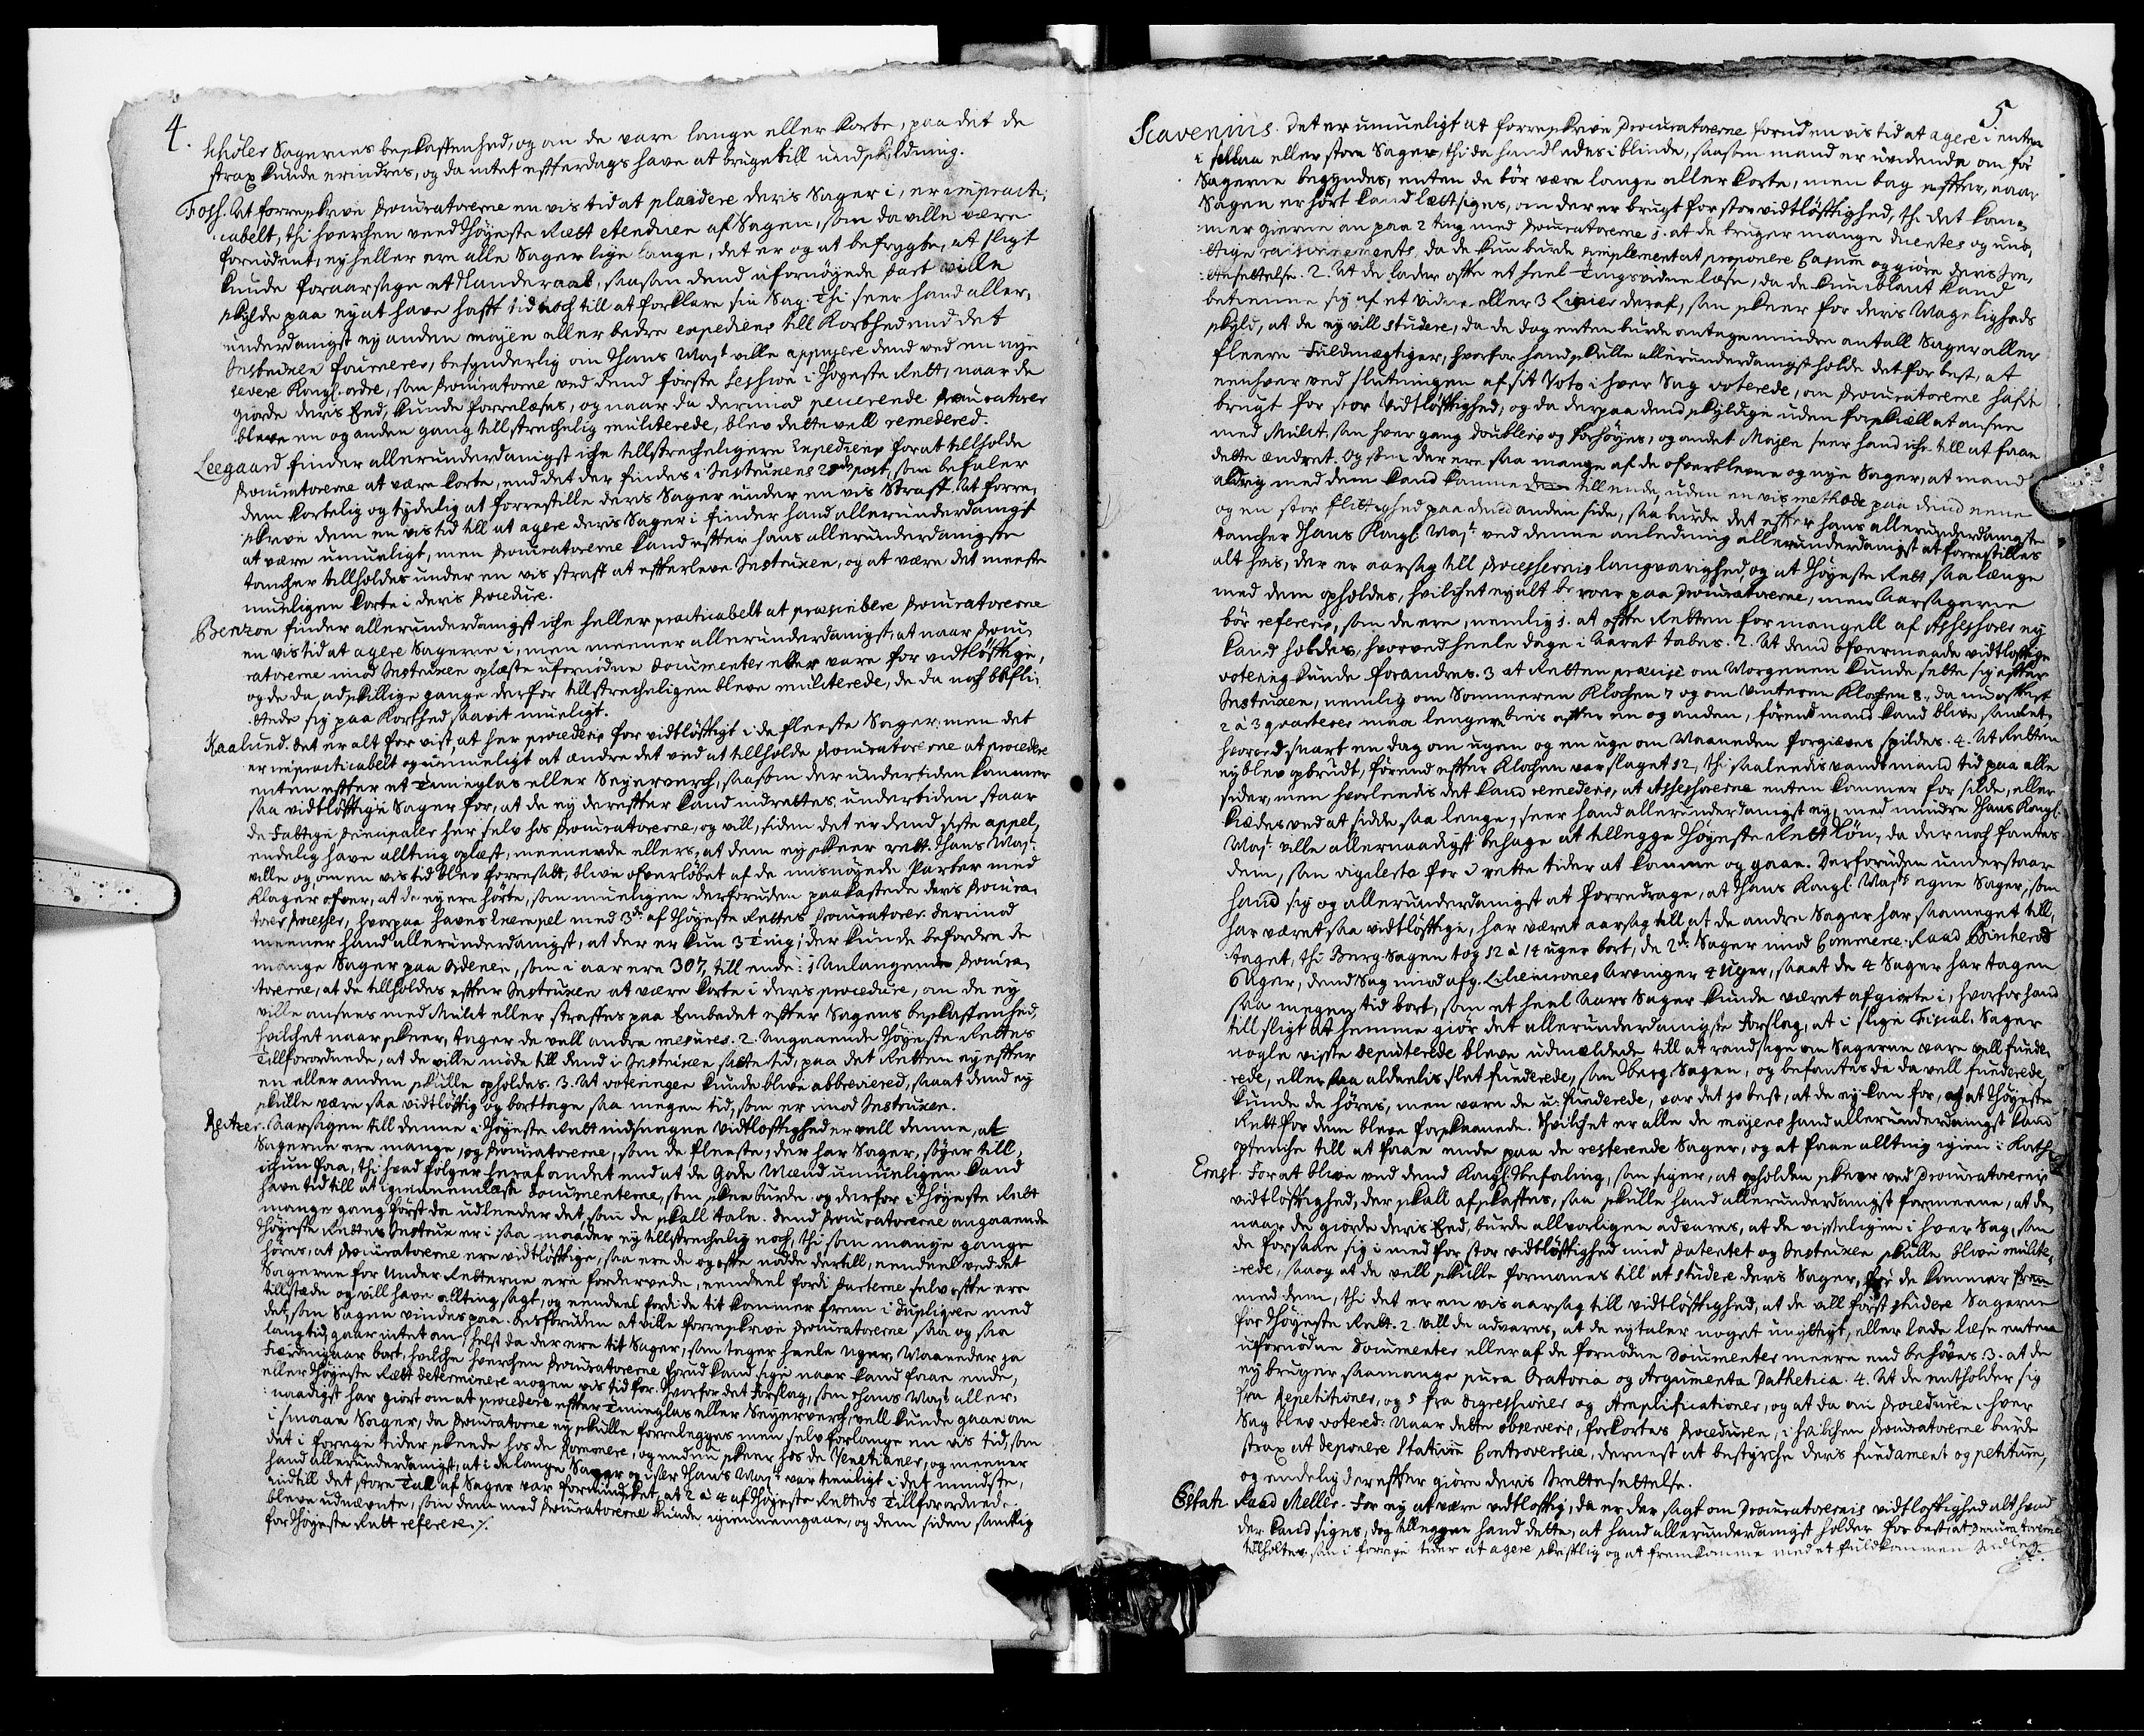 4.
Sagernes beskaffenhed, og om de vare lange eller korte, paa det de
strax kunde erindres, og da intet effterdags have at bruge till undskyldning.
Foss. At forreskrive Procuratorerne en vis tid at plaidere deris Sager i, er impracti-
cabelt, thi hverchen veed Høyeste Rætt etenduen af Sagen, som da ville være
fornødent, ey heller ere alle Sager lige lange, det er og at befrygte, at sligt
kunde foraarsage et Klanderaab, saasom dend ufornøyede Part ville
skylde paa ey at have hafft tid noch till at forklare sin Sag. Thi seer hand aller-
underdanigst ey anden moyen eller bedre expedience till Korthed end det
Instruxen fournerer, besynderlig om Hans Mayt ville appuyere dend ved en nye
severe Kongl. ordre, som Procuratorne ved dend første Session i Høyeste Rett, naar de
giorde deris Eed, kunde forrelæses, og naar da derimod peccerende Procuratorer
bleve en og anden gang tillstrechelig mulcterede, blev dette vell remedered.
Leegaard finder allerunderdanigst iche tillstrecheligere Expedience for at tillholde
Procuratorerne at være korte, end det der findes i Instruxens 20de post, som befaler
dem kortelig og tydelig at forrestille deris Sager under en vis Straff. At forre-
skrive dem en vis tid till at agere deris Sager i finder hand allerunderdanigst
at være umueligt, men Procuratorerne kand effter hans allerunderdanigste
tancher tillholdes under en vis straff at effterleve Instruxen, og at være det meeste
mueligen korte i deris Procedure.
Benzon finder allerunderdanigst iche heller practicabelt at præscribere Procuratorerne
en vis tid at agere Sagerne i, men meener allerunderdanigst, at naar Procu-
ratorerne imod Instruxen oplæste ufornødne Documenter eller vare for vidtløfftige,
og de da adskillige gange derfor tillstrecheligen bleve mulcterede, de da noch befli-
ttede sig paa Korthed saavit mueligt.
Kaalund. Det er alt for vist, at her procederis for vidtløfftigt i de fleeste Sager, men det
er impracticabelt og umueligt at ændre det ved at tillholde Procuratorerne at procedere
enten effter et Timeglas eller Seyerverch, saasom der undertiden kommer
saa vidtløfftige Sager for, at de ey dereffter kand indrettes, undertiden staar
de fattige Principaler her selv hos Procuratorerne, og vill, siden det er dend siste appel,
endelig have allting oplæst, meenende ellers, at dem ey skeer rett. Hans Mayt
ville og, om en vis tid blev forresatt, blive overløbet af de misnøyede Parter med
Klager ofver, at de ey ere hørte, som mueligen derforuden paakastede deris Procura-
torer Processer, hvorpaa haves Exempel med 3de af Høyeste Rettes Procuratorer. Derimod
meener hand allerunderdanigst, at der er kun 3 Ting, der kunde befordre de
mange Sager paa Ordenen, som i aar ere 307, till ende: 1 Anlangende Procura-
torerne, at de tillholdes effter Instruxen at være korte i deris procedure, om de ey
ville ansees med Mulct eller straffes paa Embedet effter Sagens beskaffenhed,
hvilchet naar skeer, tager de vell andre mesures. 2. Angaaende Høyeste Rettes
Tillforordnede, at de ville møde till dend i Instruxen satte tid, paa det Retten ey effter
en eller anden skulle opholdes. 3. At voteringen kunde blive abbreviered, saaat dend ey
skulle være saa vidtløfftig og borttage saa megen tid, som er imod Instruxen.
Reitzer. Aarsagen till denne i Høyeste Rett indsnegne Vidtløfftighed er vell denne, at
Sagerne ere mange, og Procuratorerne, som de fleeste, der har Sager, søger till,
ichun faa, thi hvad følger heraf andet end at de Gode Mænd umueligen kand
have tid till at igiennemlæse Documenterne, som skee burde, og derfor i Høyeste Rett
mange gang først da udleeder det, som de skall tale. Dend Procuratorerne angaaende
Høyeste Rettes Instrux er i saa maader ey tillstrechelig noch, thi som mange gange
høres, at Procuratorerne ere vidtløfftige, saa ere de og offte nødde dertill, eendeel ved det
Sagerne for Under Retterne ere fordervede, eendeel fordi Parterne selv offte ere
tillstæde og vill have allting sagt, og eendeel fordi de tit kommer frem i Dupliqven med
det, som Sagen vindes paa. Desforuden at ville forreskrive Procuratorerne saa og saa
lang tid, gaar intet an, helst da der ere tit Sager, som tager heele Uger, Maaneder ja
Fierdingaar bort, hvilche hverchen Procuratorerne forud kand sige naar kand faae ende,
eller Høyeste Rett determinere nogen vis tid for. Hvorfor det Forslag, som Hans Mayt aller-
naadigst har giort om at procedere effter Timeglas eller Seyerverch, vell kunde gaae an
i smaae Sager, da Procuratorne ey skulle forrelegges men selv forlange en vis tid, som
det i forrige tider skeede hos de Romanere, og endnu skeer hos de Venetianer, og meener
hand allerunderdanigst, at i de lange Sager og især Hans Mayt var tienligt i det mindste,
indtill det store Tall af Sager var formindsket, at 2 à 4 af Høyeste Rettes Tillforordnede
bleve udnævnte, som dem med Procuratorerne kunde igiennemgaae, og dem siden samtlig
for Høyeste Rett referere. ∕.
5.
Scavenius. Det er umueligt at forreskrive Procuratorerne forud en vis tid at agere i enten
i smaa eller store Sager, thi da handledes i blinde, saasom mand er uvidende om før
Sagerne begyndes, enten de bør være lange eller korte, men bag effter, naar
Sagen er hørt kand lættsiges, om der er brugt for stor vidtløfftighed, th. det kom-
mer gierne an paa 2 ting med Procuratorerne 1. at de bruger mange ducenter og unø-
ttige raisonnements, da de kun burde simplement at proponere Casum og giøre deris Iræ-
ttesettelse. 2. At de lader offte et heel Tingsvidne læse, da de kun blant kand
betienne sig af et Vidne eller 3 Linier deraf, som skeer for deris Magelighedss
skyld, at de ey vill studere, da de dog enten burde antage mindre antall Sager eller
fleere Fuldmægtiger, hvorfor hand skulle allerunderdanigst holde det for best, at
eenhver ved slutningen af sit Voto i hver Sag voterede, om Procuratorerne hafde
brugt for stor Vidtløfftighed, og da derpaa dend skyldige uden forskiæll at ansee
med Mulct, som hver gang doubleris og forhøyes, og andet Moyen seer hand iche till at faae
dette ændret. Og som der ere saa mange af de ofverblevne og nye Sager, at mand
aldrig med dem kand komme till ende, uden en vis methode paa dend eene
og en stor flittighed paa dend anden side, saa burde det effter hans allerunderdanigste
tancher Hans Kongl. Mayt ved denne anledning allerunderdanigst at forrestilles
alt hvis, der er aarsag till Processernis langvarighed, og at Høyeste Rett saa længe
med dem opholdes, hvilchet ey alt beroer paa Procuratorerne, men Aarsagerne
bør refereris, som de ere, nemlig 1. at offte Retten for mangell af Assessorer ey
kand holdes, hvorved heele dage i Aaret tabes. 2. At dend ofvermaade vidtløfftige
votering kunde forandres. 3 at Retten præcise om Morgenen kunde sette sig effter
Instruxen, nemlig om Sommeren Klochen 7 og om Vinteren Klochen 8, da nu offte
2 à 3 qvarterer maa lenger bies effter een og anden, førend mand kand blive samlet,
hvorved snart en dag om ugen og en uge om Maaneden forgiæves spildes. 4. At Retten
ey blev opbrudt, førend effter Klochen var slaget 12, thi saaleedis vandt mand tid paa alle
sider, men hvorleedis det kand remederis, at Assessorerne enten kommer for silde, eller
kiædes ved at sidde saa længe, seer hand allerunderdanigst ey, med mindre Hans Kongl.
Mayt ville allernaadigst behage at tillegge Høyeste Rett Løn, da der noch fantes
dem, som vigilerte for i rette tider at komme og gaae. Derforuden understaar
hand sig og allerunderdanigst at forredrage, at Hans Kongl. Mayts egne Sager, som
har været saa vidtløfftige, har været aarsag till at de andre Sager har saameget till-
taget, thi Berg-Sagen tog 12 à 14 uger bort, de 2de Sager imod Commerce-Raad Bircherod
6 Uger, dend Sag imod afg. Lilienscones Arvinger 4 Uger, saaat de 4 Sager har tagen
saa megen tid bort, som et heel Aars Sager kunde været afgiorte i, hvorfor hand
till sligt at hemme giør det allerunderdanigste Forslag, at i slige Fiscal. Sager
nogle visse deputerede bleve udmældede till at randsage om Sagerne vare vell funde-
rede, eller saa aldeelis slet funderede, som berg Sagen, og befantes de da vell funderede
kunde de høres, men vare de u-funderede, var det jo best, at de ey kom for, og at Høyeste
Rett for dem bleve forskaanede. Hvilchet er alle de moyens hand allerunderdanigst kand
optenche till at faae ende paa de resterende Sager, og at faae allting igien i Laug.
Ernst. For at blive ved dend Kongl. Befaling, som siger, at opholden skeer ved Procuratorernis
vidtløfftighed, der skall afskaffes, saa skulle hand allerunderdanigst formeene, at de
naar de giorde deris Eed, burde allvorligen advares, at de visseligen i hver Sag, som
de forsaae sig i med for stor vidtløfftighed imod Patentet og Instruxen skulle blive mulcte-
rede, saa og at de vell skulle formanes till at studere deris Sager, før de kommer frem
med dem, thi det er en vis aarsag till vidtløfftighed, at de vill først studere Sagerne
for Høyeste Rett. 2. Vill de advares, at de ey taler noget unyttigt, eller lade læse enten
ufornødne Documenter eller af de fornødne Documenter meere end behøves. 3. at de
ey bruger saa mange pura Oratoria og Argumenta Pathetica. 4. At de entholder sig
fra Repetitioner, og 5 fra Digressioner og Amplificationer, og at da om Proceduren i hver
Sag blev votered. Naar dette observeris, forkortes Proceduren, i hvilchen Procuratorerne burde
strax at deponere Statum Controversiæ, dernest at bestyrche deris fundament og petitum,
og endelig dereffter giøre deris Irettesettelse.
Estats Raad Meller. For ey at være vidtløfftig, da er der sagt om Procuratorernis vidtløfftighed alt hvad
der kand siges, dog tillegger hand dette, at hand allerunderdanigst holder for best, at Procuratorerne
tillholtes som i forrige tider at agere skrifftlig og at fremkomme med et fuldkommen Indleg